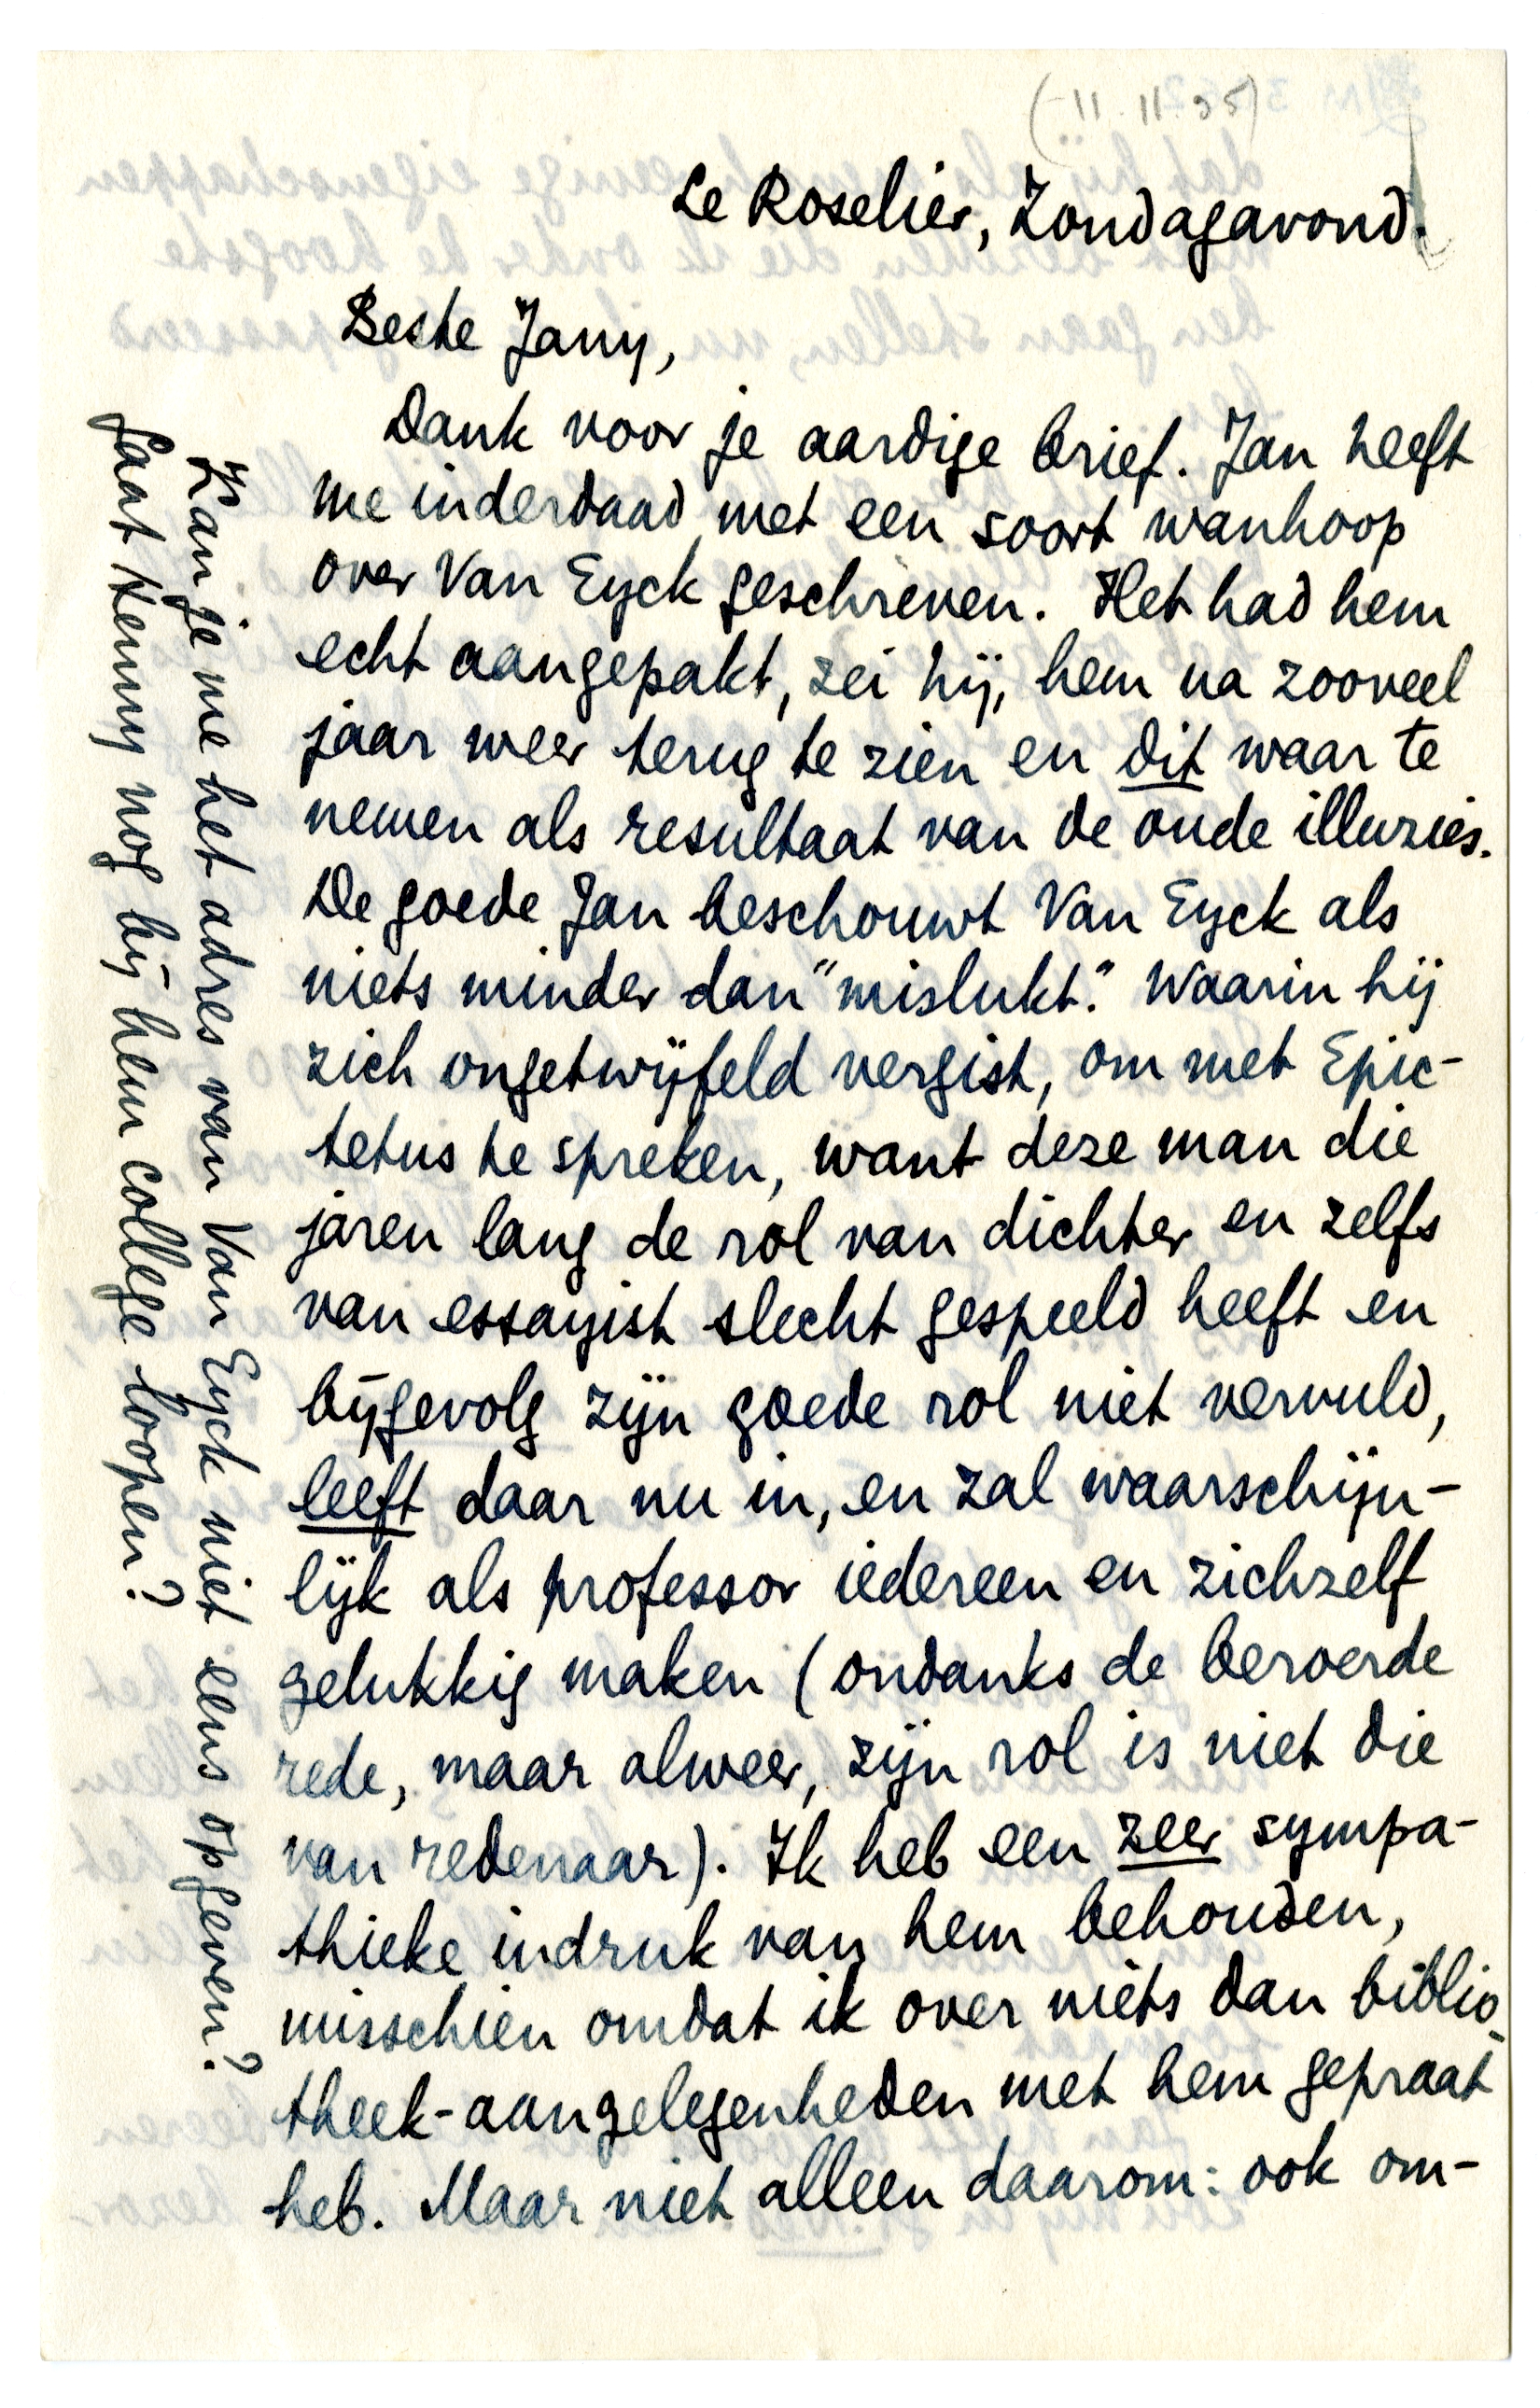 (-11.11.35)
Le Roselier, Zondagavond.
Beste Jany,
Dank voor je aardige brief. Jan heeft
me inderdaad met een soort wanhoop
over Van Eyck geschreven. Het had hem
echt aangepakt, zei hij, hem na zooveel
jaar weer terug te zien en dit waar te
nemen als resultaat van de oude illuzies.
De goede Jan beschouwt Van Eyck als
niets minder dan "mislukt." Waarin hij
zich ongetwijfeld vergist, om met Epic-
tetus te spreken, want deze man die
jaren lang de rol van dichter en zelfs
van essayist slecht gespeeld heeft en
bijgevolg zijn goede rol niet vervuld,
leeft daar nu in, en zal waarschijn-
lijk als professor iedereen en zichzelf
gelukkig maken (ondanks de beroerde
rede, maar alweer, zijn rol is niet die
van redenaar). Ik heb een zeer sympa-
thieke indruk van hem behouden,
misschien omdat ik over niets dan biblio-
theek-aangelegenheden met hem gepraat
heb. Maar niet alleen daarom: ook om-
Kan je me het adres van Van Eyck niet eens opgeven?
Gaat Henny nog bij hem college loopen?